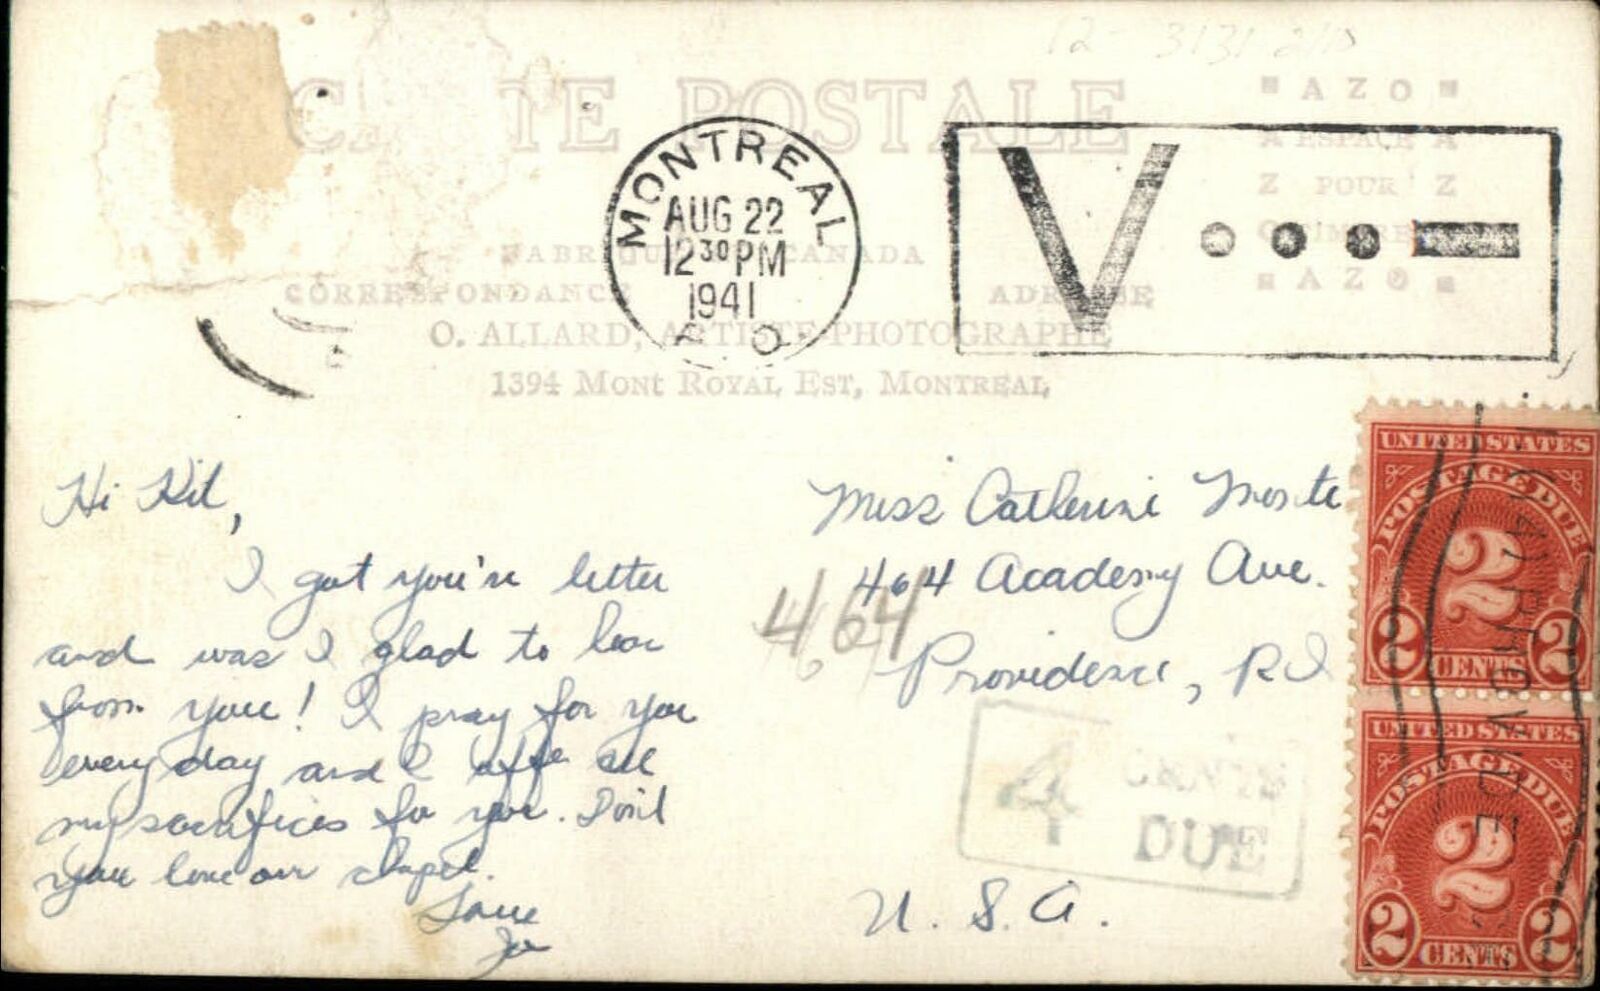 12- 3131 210
CARTE POSTALE
AZO
A ESPACE A
Z POUR Z
O TIMBRE
AZO
MONTREAL
AUG 22
12 30 PM
1941
P Q
V
FABRIQUÉ CANADA
CORRESPONDANCE
ADRESSE
O. ALLARD, ARTISTE-PHOTOGRAPHE
1394 MONT ROYAL EST, MONTREAL
Hi Kit,
I got you're letter
and was I glad to hear
from you! I pray for you
every day and I offer all
my sacrifices for you. Don't
you love our chapel.
Love
Joe
Miss Catherine Monte
464 Academy Ave.
464
Providence, RI
U. S. A.
4 CENTS
DUE
UNITED STATES
POSTAGE DUE
2
2 CENTS 2
UNITED STATES
POSTAGE DUE
2
2 CENTS 2
PROVIDE